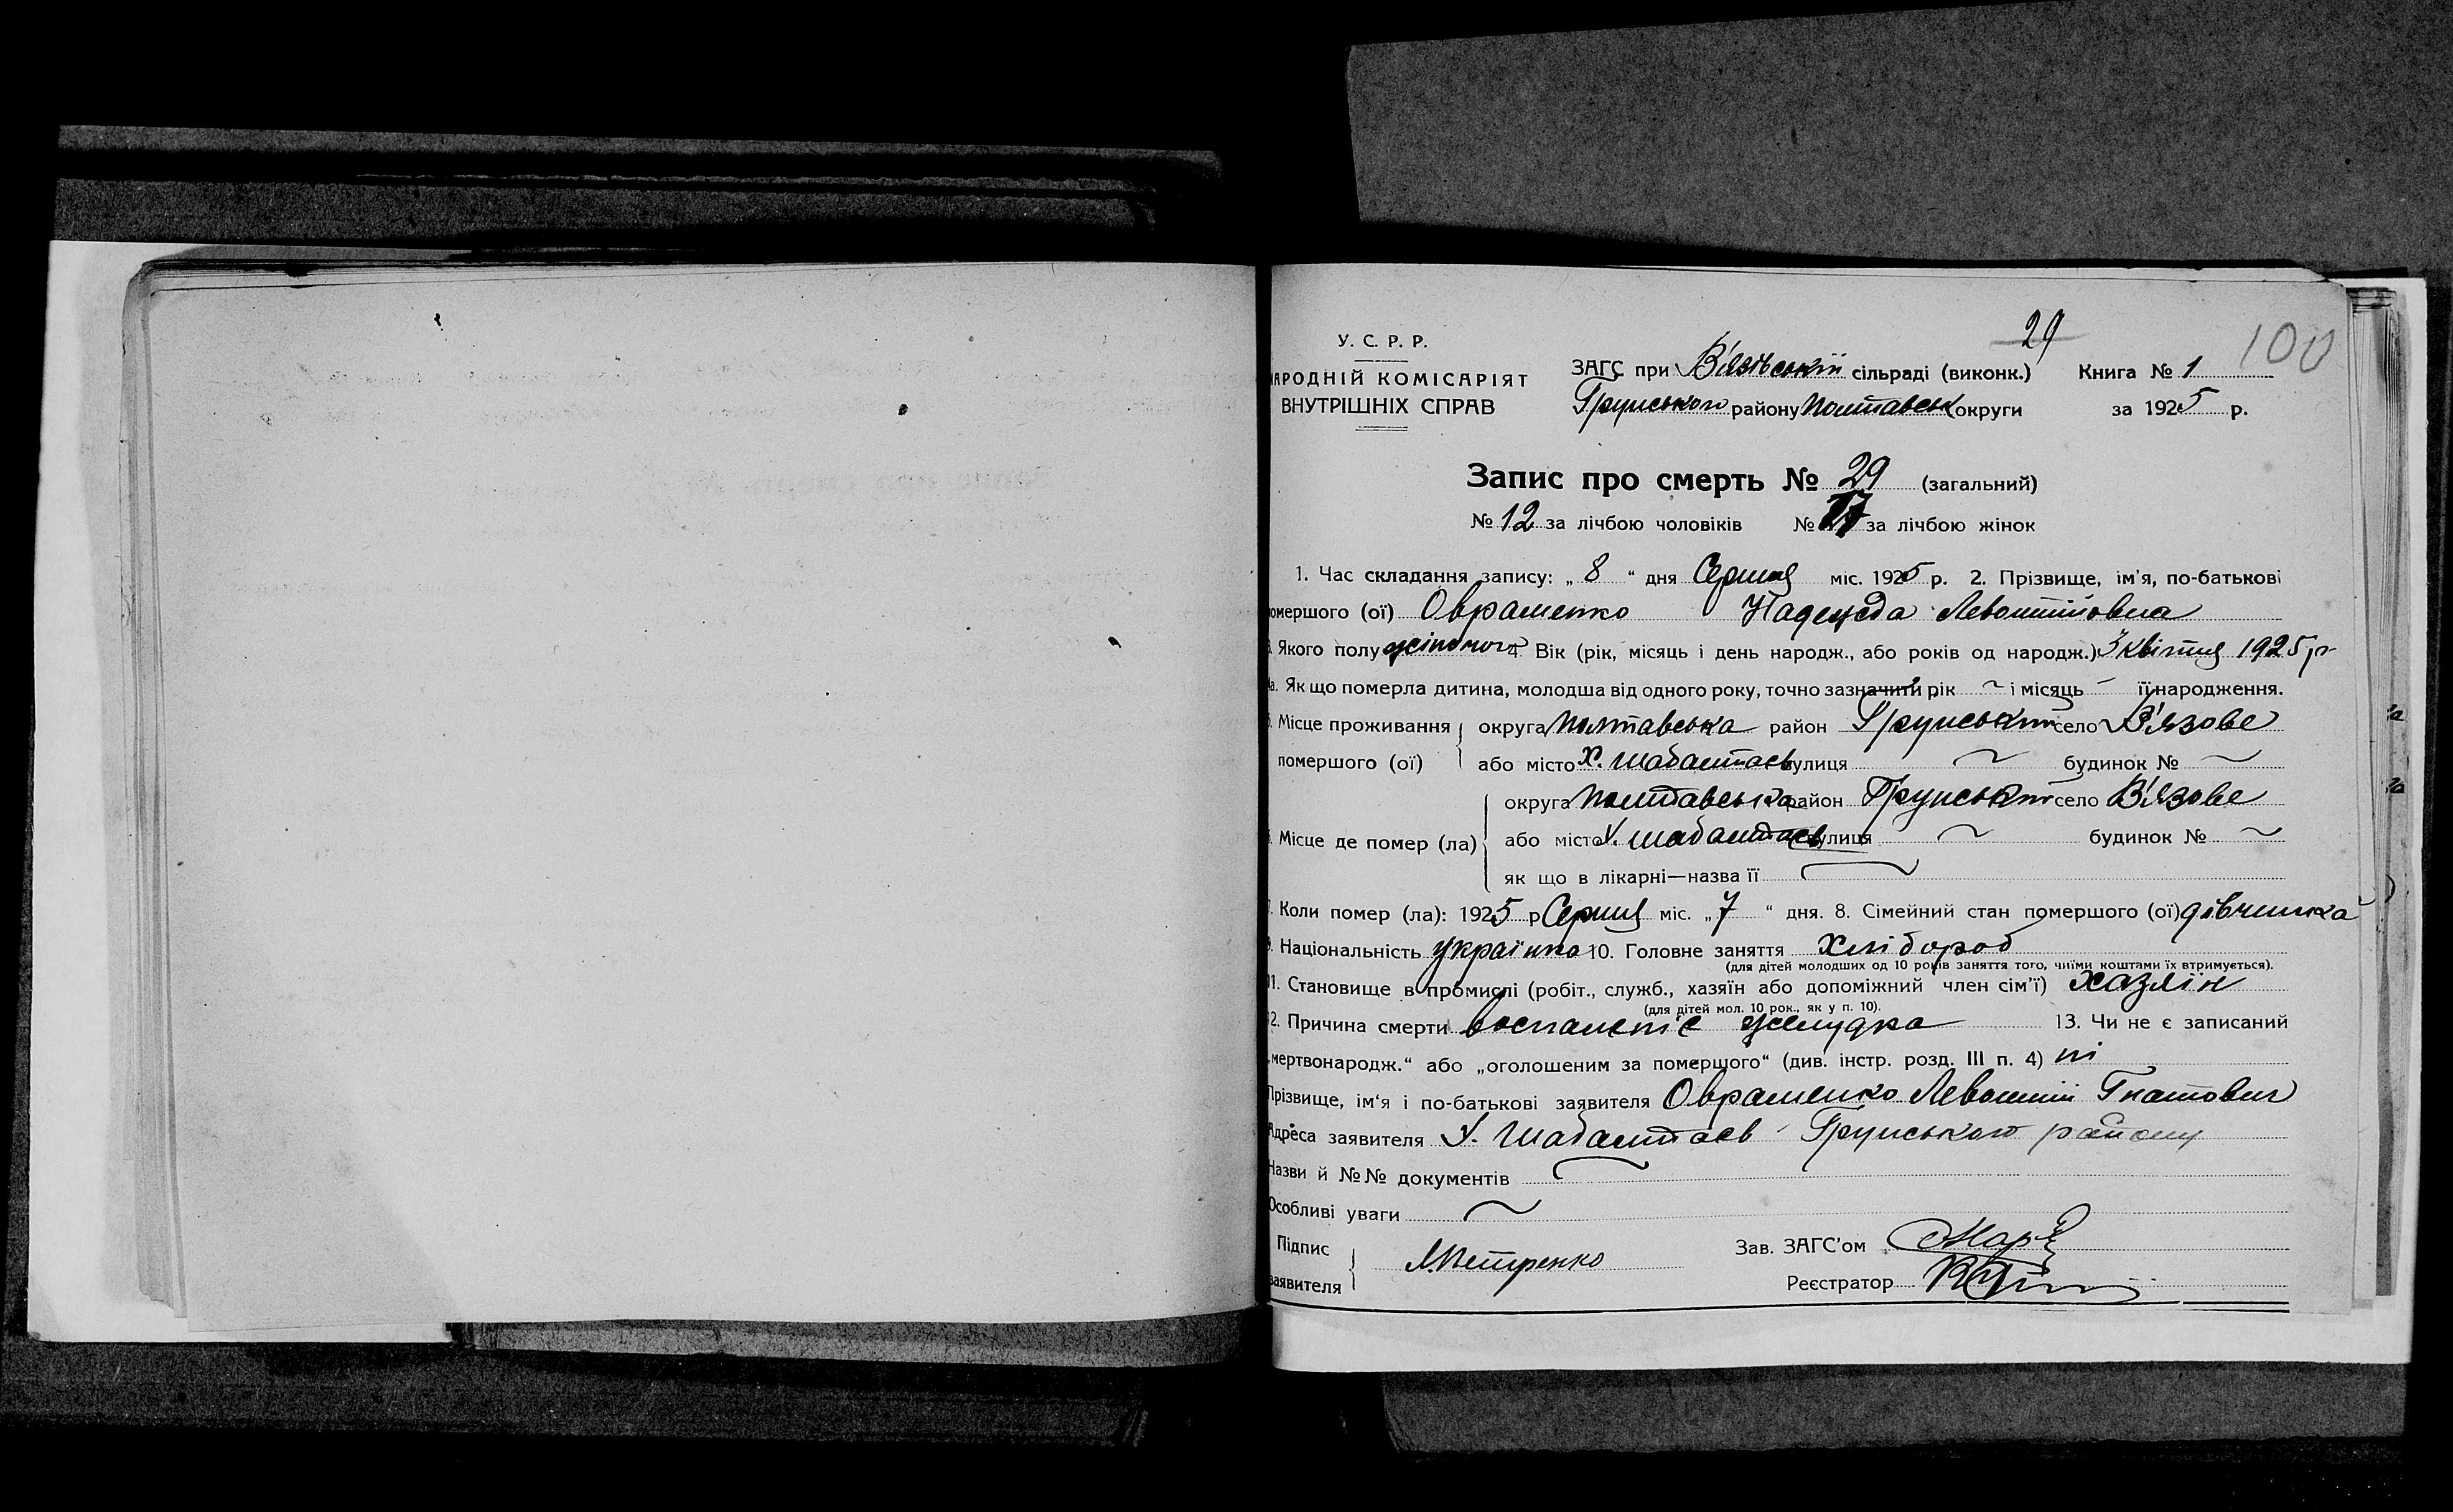 29
100
У. С. Р. Р.
АРОДНІЙ КОМІСАРІЯТ
ВНУТРІШНІХ СПРАВ
ЗАГС при В'язівській сільраді (виконк.) Книга № 1
Грунського району Полтавськ округи за 1925 р.
Запис про смерть № 29 (загальний)
№ 12 за лічбою чоловіків № 17 за лічбою жінок
1. Час складання запису: „ 8 “ дня Серпня міс. 1925 р. 2. Прізвище, ім'я, по-батькові
омершого (ої) Овраменко Надежда Левонтійовна
Якого полу жіночого 4. Вік (рік, місяць і день народж., або років од народж.) 3 квітня 1925 р
а. Як що померла дитина, молодша від одного року, точно зазначити рік ~ і місяць – її народження.
Місце проживання округа Полтавська район Грунський село В'язове
помершого (ої) або місто х. Шабалтаєв вулиця ~ будинок № ~
округа Полтавська район Грунський село В'язове
Місце де помер (ла) або місто х. Шабалтаєв вулиця ~ будинок № ~
як що в лікарні—назва її ~
Коли помер (ла): 1925 р Серпня міс. „ 7 “ дня. 8. Сімейний стан помершого (ої) дівчинка
Національність українка 10. Головне заняття хлібороб
(для дітей молодших од 10 років заняття того, чиїми коштами їх втримується).
11. Становище в промислі (робіт., служб., хазяїн або допоміжний член сім'ї) хазяїн
(для дітей мол. 10 рок., як у п. 10).
2. Причина смерти воспаленіє желудка 13. Чи не є записаний
„мертвонародж.“ або „оголошеним за помершого“ (див. інстр. розд. III п. 4) ні
Прізвище, ім'я і по-батькові заявителя Овраменко Левонтій Гнатович
Адреса заявителя х. Шабалтаєв Грунського району
Назви й №№ документів ~
Особливі уваги ~
Підпис
заявителя Л. Петренко
Зав. ЗАГС'ом
Реєстратор